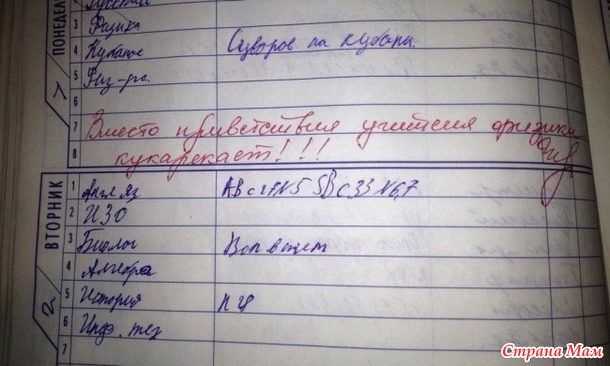 ПОНЕДЕЛ
Русский
3 Физика
4 Кубанов Суворов на кубани.
5 Физ-ра.
6
7 Вместо приветствия учителя физики
8 кукарекает!!!
ВТОРНИК
1 Англ яз
2 ИЗО
3 Биолог
4 Алгебра
5 История
6 Инф. тех
7
2
Страна Мам